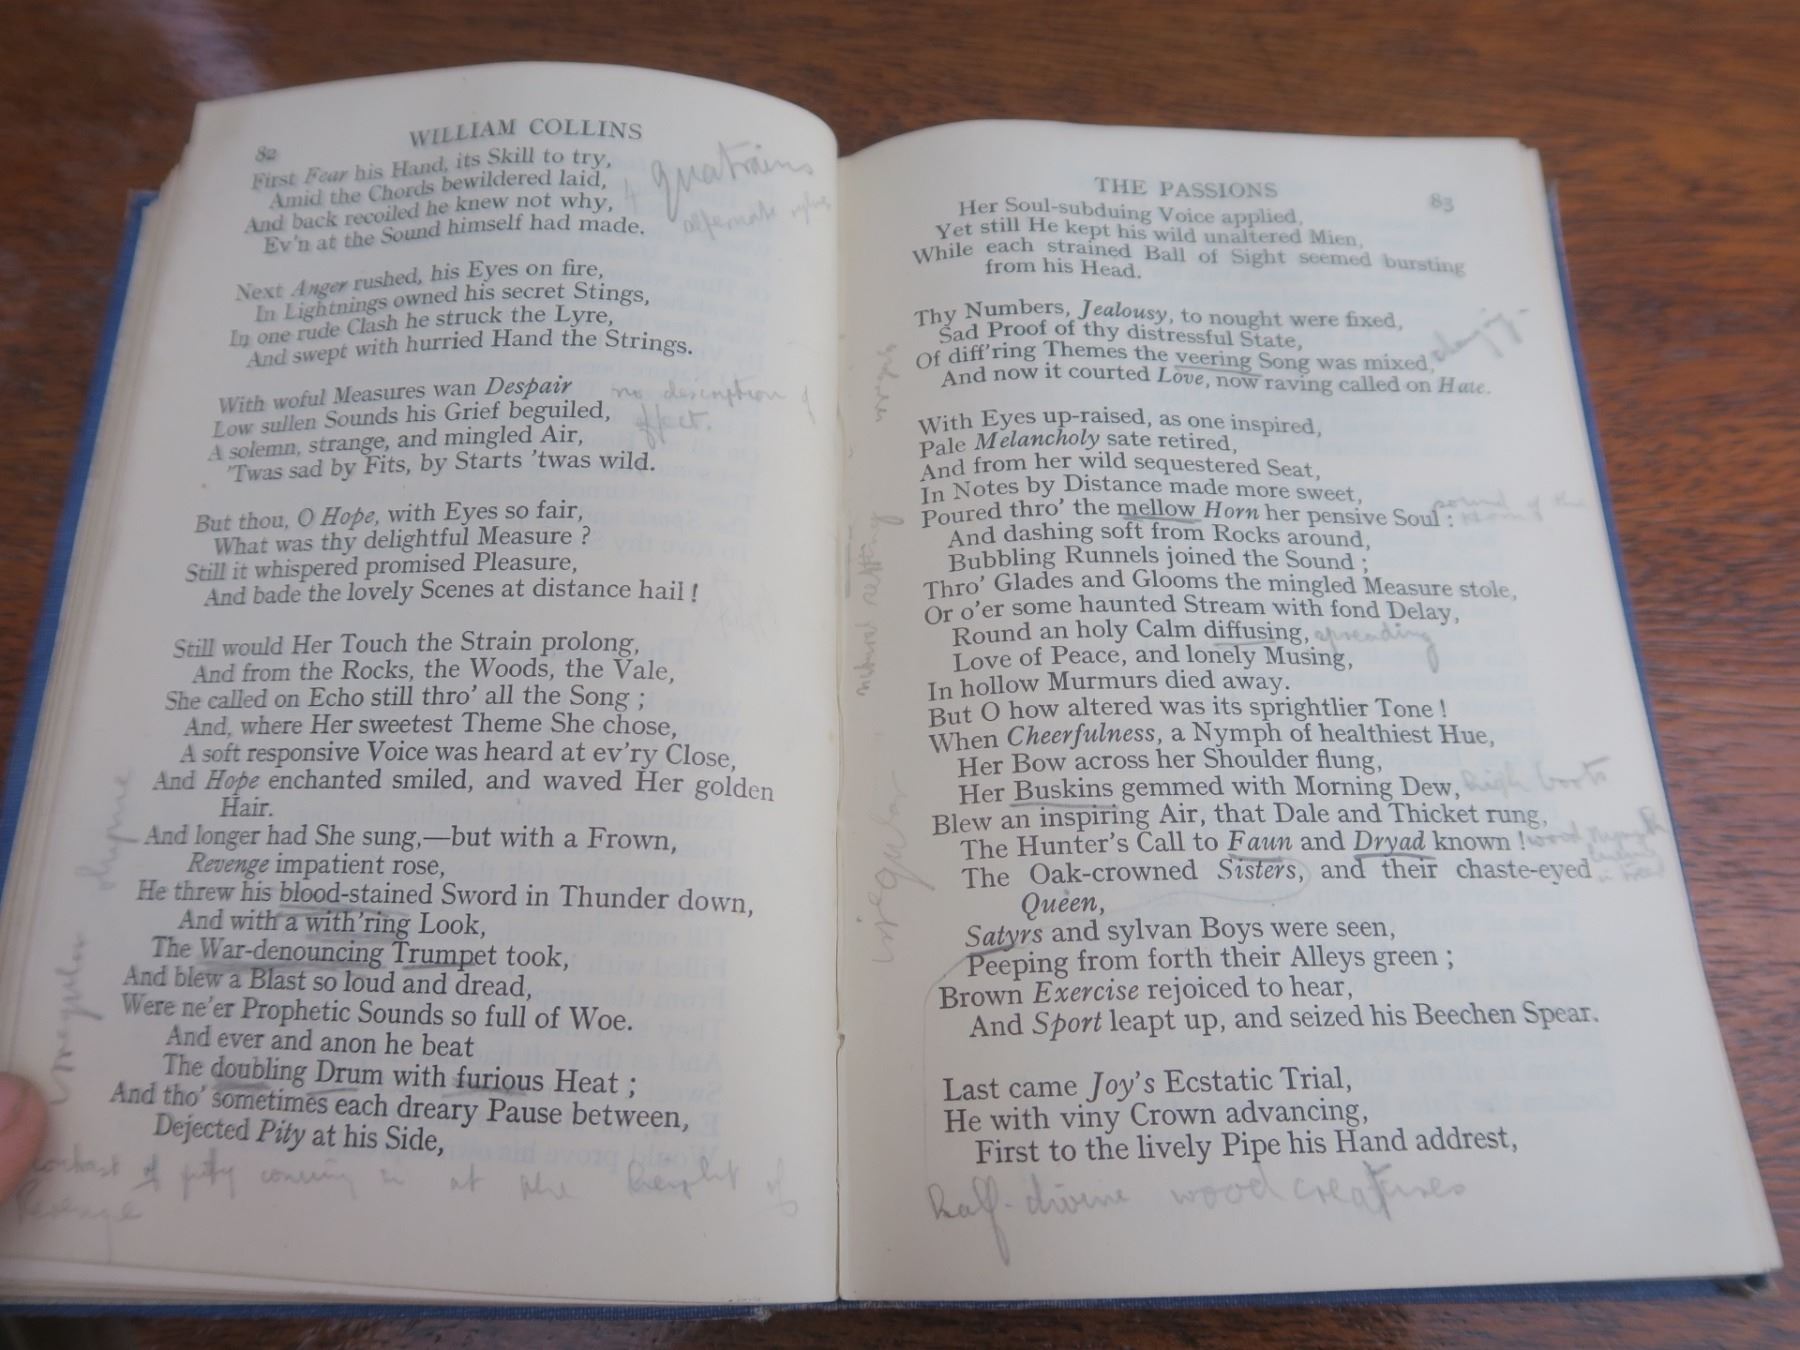 82
WILLIAM COLLINS
First Fear his Hand, its Skill to try,
Amid the Chords bewildered laid,
And back recoiled he knew not why,
Ev'n at the Sound himself had made.
4 quatrains
alternate
Next Anger rushed, his Eyes on fire,
In Lightnings owned his secret Stings,
In one rude Clash he struck the Lyre,
And swept with hurried Hand the Strings.
With woful Measures wan Despair
Low sullen Sounds his Grief beguiled,
A solemn, strange, and mingled Air,
'Twas sad by Fits, by Starts 'twas wild.
no description of
effect.
But thou, O Hope, with Eyes so fair,
What was thy delightful Measure ?
Still it whispered promised Pleasure,
And bade the lovely Scenes at distance hail !
Still would Her Touch the Strain prolong,
And from the Rocks, the Woods, the Vale,
She called on Echo still thro' all the Song ;
And, where Her sweetest Theme She chose,
A soft responsive Voice was heard at ev'ry Close,
And Hope enchanted smiled, and waved Her golden
Hair.
And longer had She sung,—but with a Frown,
Revenge impatient rose,
He threw his blood-stained Sword in Thunder down,
And with a with'ring Look,
The War-denouncing Trumpet took,
And blew a Blast so loud and dread,
Were ne'er Prophetic Sounds so full of Woe.
And ever and anon he beat
The doubling Drum with furious Heat ;
And tho' sometimes each dreary Pause between,
Dejected Pity at his Side,
irregular rhyme
contrast of pity coming in at the height of
Revenge
THE PASSIONS
83
Her Soul-subduing Voice applied,
Yet still He kept his wild unaltered Mien,
While each strained Ball of Sight seemed bursting
from his Head.
Thy Numbers, Jealousy, to nought were fixed,
Sad Proof of thy distressful State,
Of diff'ring Themes the veering Song was mixed, changing
And now it courted Love, now raving called on Hate.
With Eyes up-raised, as one inspired,
Pale Melancholy sate retired,
And from her wild sequestered Seat,
In Notes by Distance made more sweet,
Poured thro' the mellow Horn her pensive Soul : sound of the
And dashing soft from Rocks around,
Bubbling Runnels joined the Sound ;
Thro' Glades and Glooms the mingled Measure stole,
Or o'er some haunted Stream with fond Delay,
Round an holy Calm diffusing, spreading
Love of Peace, and lonely Musing,
In hollow Murmurs died away.
But O how altered was its sprightlier Tone !
When Cheerfulness, a Nymph of healthiest Hue,
Her Bow across her Shoulder flung,
Her Buskins gemmed with Morning Dew, high boots
Blew an inspiring Air, that Dale and Thicket rung,
The Hunter's Call to Faun and Dryad known ! wood nymph
The Oak-crowned Sisters, and their chaste-eyed
Queen,
Satyrs and sylvan Boys were seen,
Peeping from forth their Alleys green ;
Brown Exercise rejoiced to hear,
And Sport leapt up, and seized his Beechen Spear.
Last came Joy's Ecstatic Trial,
He with viny Crown advancing,
First to the lively Pipe his Hand addrest,
irregular
natural setting
half-divine wood creatures